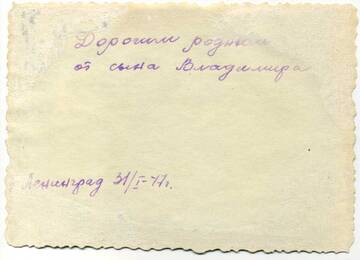 Дорогим родным
от сына Владимира
Ленинград 31/I-47г.